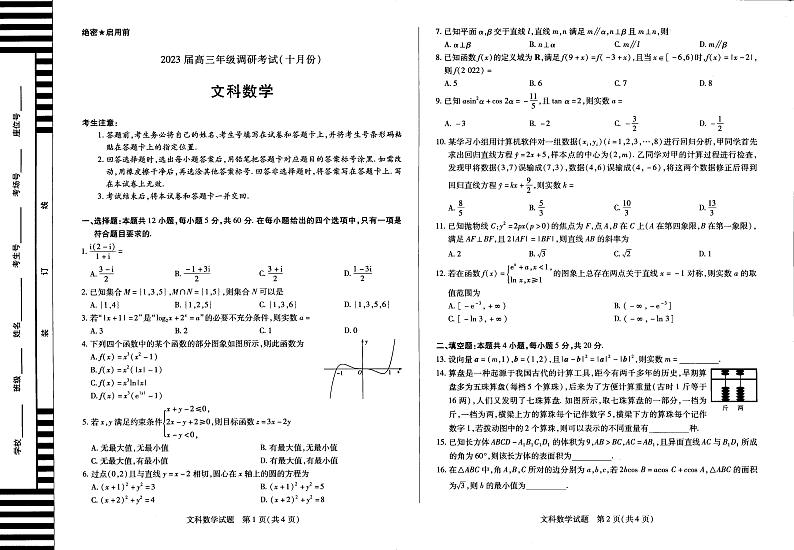 绝密★启用前
2023 届高三年级调研考试(十月份)
文科数学
考生注意:
1. 答题前,考生务必将自己的姓名、考生号填写在试卷和答题卡上,并将考生号条形码粘
贴在答题卡上的指定位置.
2. 回答选择题时,选出每小题答案后,用铅笔把答题卡对应题目的答案标号涂黑.如需改
动,用橡皮擦干净后,再选涂其他答案标号.回答非选择题时,将答案写在答题卡上.写
在本试卷上无效.
3. 考试结束后,将本试卷和答题卡一并交回.
一、选择题:本题共 12 小题,每小题 5 分,共 60 分. 在每小题给出的四个选项中,只有一项是
符合题目要求的.
1. i(2-i)/(1+i)
A. (3-i)/2 B. (-1+3i)/2 C. (3+i)/2 D. (1-3i)/2
2. 已知集合 M={1,3,5},M∩N={1,5},则集合 N 可以是
A. {1,4} B. {1,2,5} C. {1,3,6} D. {1,3,5,6}
3. 若“|x+1|=2”是“log₂x+2ˣ=a”的必要不充分条件,则实数 a=
A. 3 B. 2 C. 1 D. 0
4. 下列四个函数中的某个函数的部分图象如图所示,则此函数为
A. f(x)=x³(x²-1)
B. f(x)=x²(|x|-1)
C. f(x)=x³ln|x|
y
-1 O 1 x
5. 若 x,y 满足约束条件{x+y-2≤0, 2x-y+2≥0, x-y<0, 则目标函数 z=3x-2y
A. 无最大值,无最小值 B. 有最大值,无最小值
C. 无最大值,有最小值 D. 有最大值,有最小值
6. 过点(0,2)且与直线 y=x-2 相切,圆心在 x 轴上的圆的方程为
A. (x+1)²+y²=3 B. (x+1)²+y²=5
C. (x+2)²+y²=4 D. (x+2)²+y²=8
文科数学试题 第 1 页(共 4 页)
7. 已知平面 α,β 交于直线 l,直线 m,n 满足 m∥α,n⊥β 且 m⊥n,则
A. α⊥β B. n⊥α C. m∥l D. m∥β
8. 已知函数 f(x)的定义域为 R,满足 f(9+x)=f(-3+x),且当 x∈[-6,6)时,f(x)=|x-2|,
则 f(2 022)=
A. 5 B. 6 C. 7 D. 8
9. 已知 asin²α+cos 2α=-11/5,且 tan α=2,则实数 a=
A. -3 B. -2 C. -3/2 D. -1/2
10. 某学习小组用计算机软件对一组数据(xᵢ,yᵢ)(i=1,2,3,…,8)进行回归分析,甲同学首先
求出回归直线方程 ŷ=2x+5,样本点的中心为(2,m). 乙同学对甲的计算过程进行检查,
发现甲将数据(3,7)误输成(7,3),数据(4,6)误输成(4,-6),将这两个数据修正后得到
回归直线方程 ŷ=kx+9/2,则实数 k=
A. 8/5 B. 5/3 C. 10/3 D. 13/3
11. 已知抛物线 C:y²=2px(p>0)的焦点为 F,点 A,B 在 C 上(A 在第四象限,B 在第一象限),
满足 AF⊥BF,且 2|AF|=|BF|,则直线 AB 的斜率为
A. 2 B. √3 C. √2 D. 1
12. 若在函数 f(x)={eˣ+a,x<1, ln x,x≥1 的图象上总存在两点关于直线 x=-1 对称,则实数 a 的取
值范围为
A. [-e⁻³,+∞) B. (-∞,-e⁻³]
C. [-ln 3,+∞) D. (-∞,-ln 3]
二、填空题:本题共 4 小题,每小题 5 分,共 20 分.
13. 设向量 a=(m,1),b=(1,2),且|a-b|²=|a|²-|b|²,则实数 m=________.
14. 算盘是一种起源于我国古代的计算工具,距今有两千多年的历史,早期算
盘多为五珠算盘(每档 5 个算珠),后来为了方便计算重量(古时 1 斤等于
16 两),人们又发明了七珠算盘. 如图所示,取七珠算盘的一部分,一档为
斤,一档为两,横梁上方的算珠每个记作数字 5,横梁下方的算珠每个记作
数字 1,若拨动图中的 2 个算珠,则可以表示的不同重量有________种.
斤 两
15. 已知长方体 ABCD-A₁B₁C₁D₁ 的体积为 9,AB>BC,AC=AB₁,且异面直线 AC 与 B₁D₁ 所成
的角为 60°,则该长方体的表面积为________.
16. 在△ABC 中,角 A,B,C 所对的边分别为 a,b,c,若 2bcos B=acos C+ccos A,△ABC 的面积
为√3,则 b 的最小值为________.
文科数学试题 第 2 页(共 4 页)
学校
班级
姓名
考生号
考场号
座位号
装
订
线